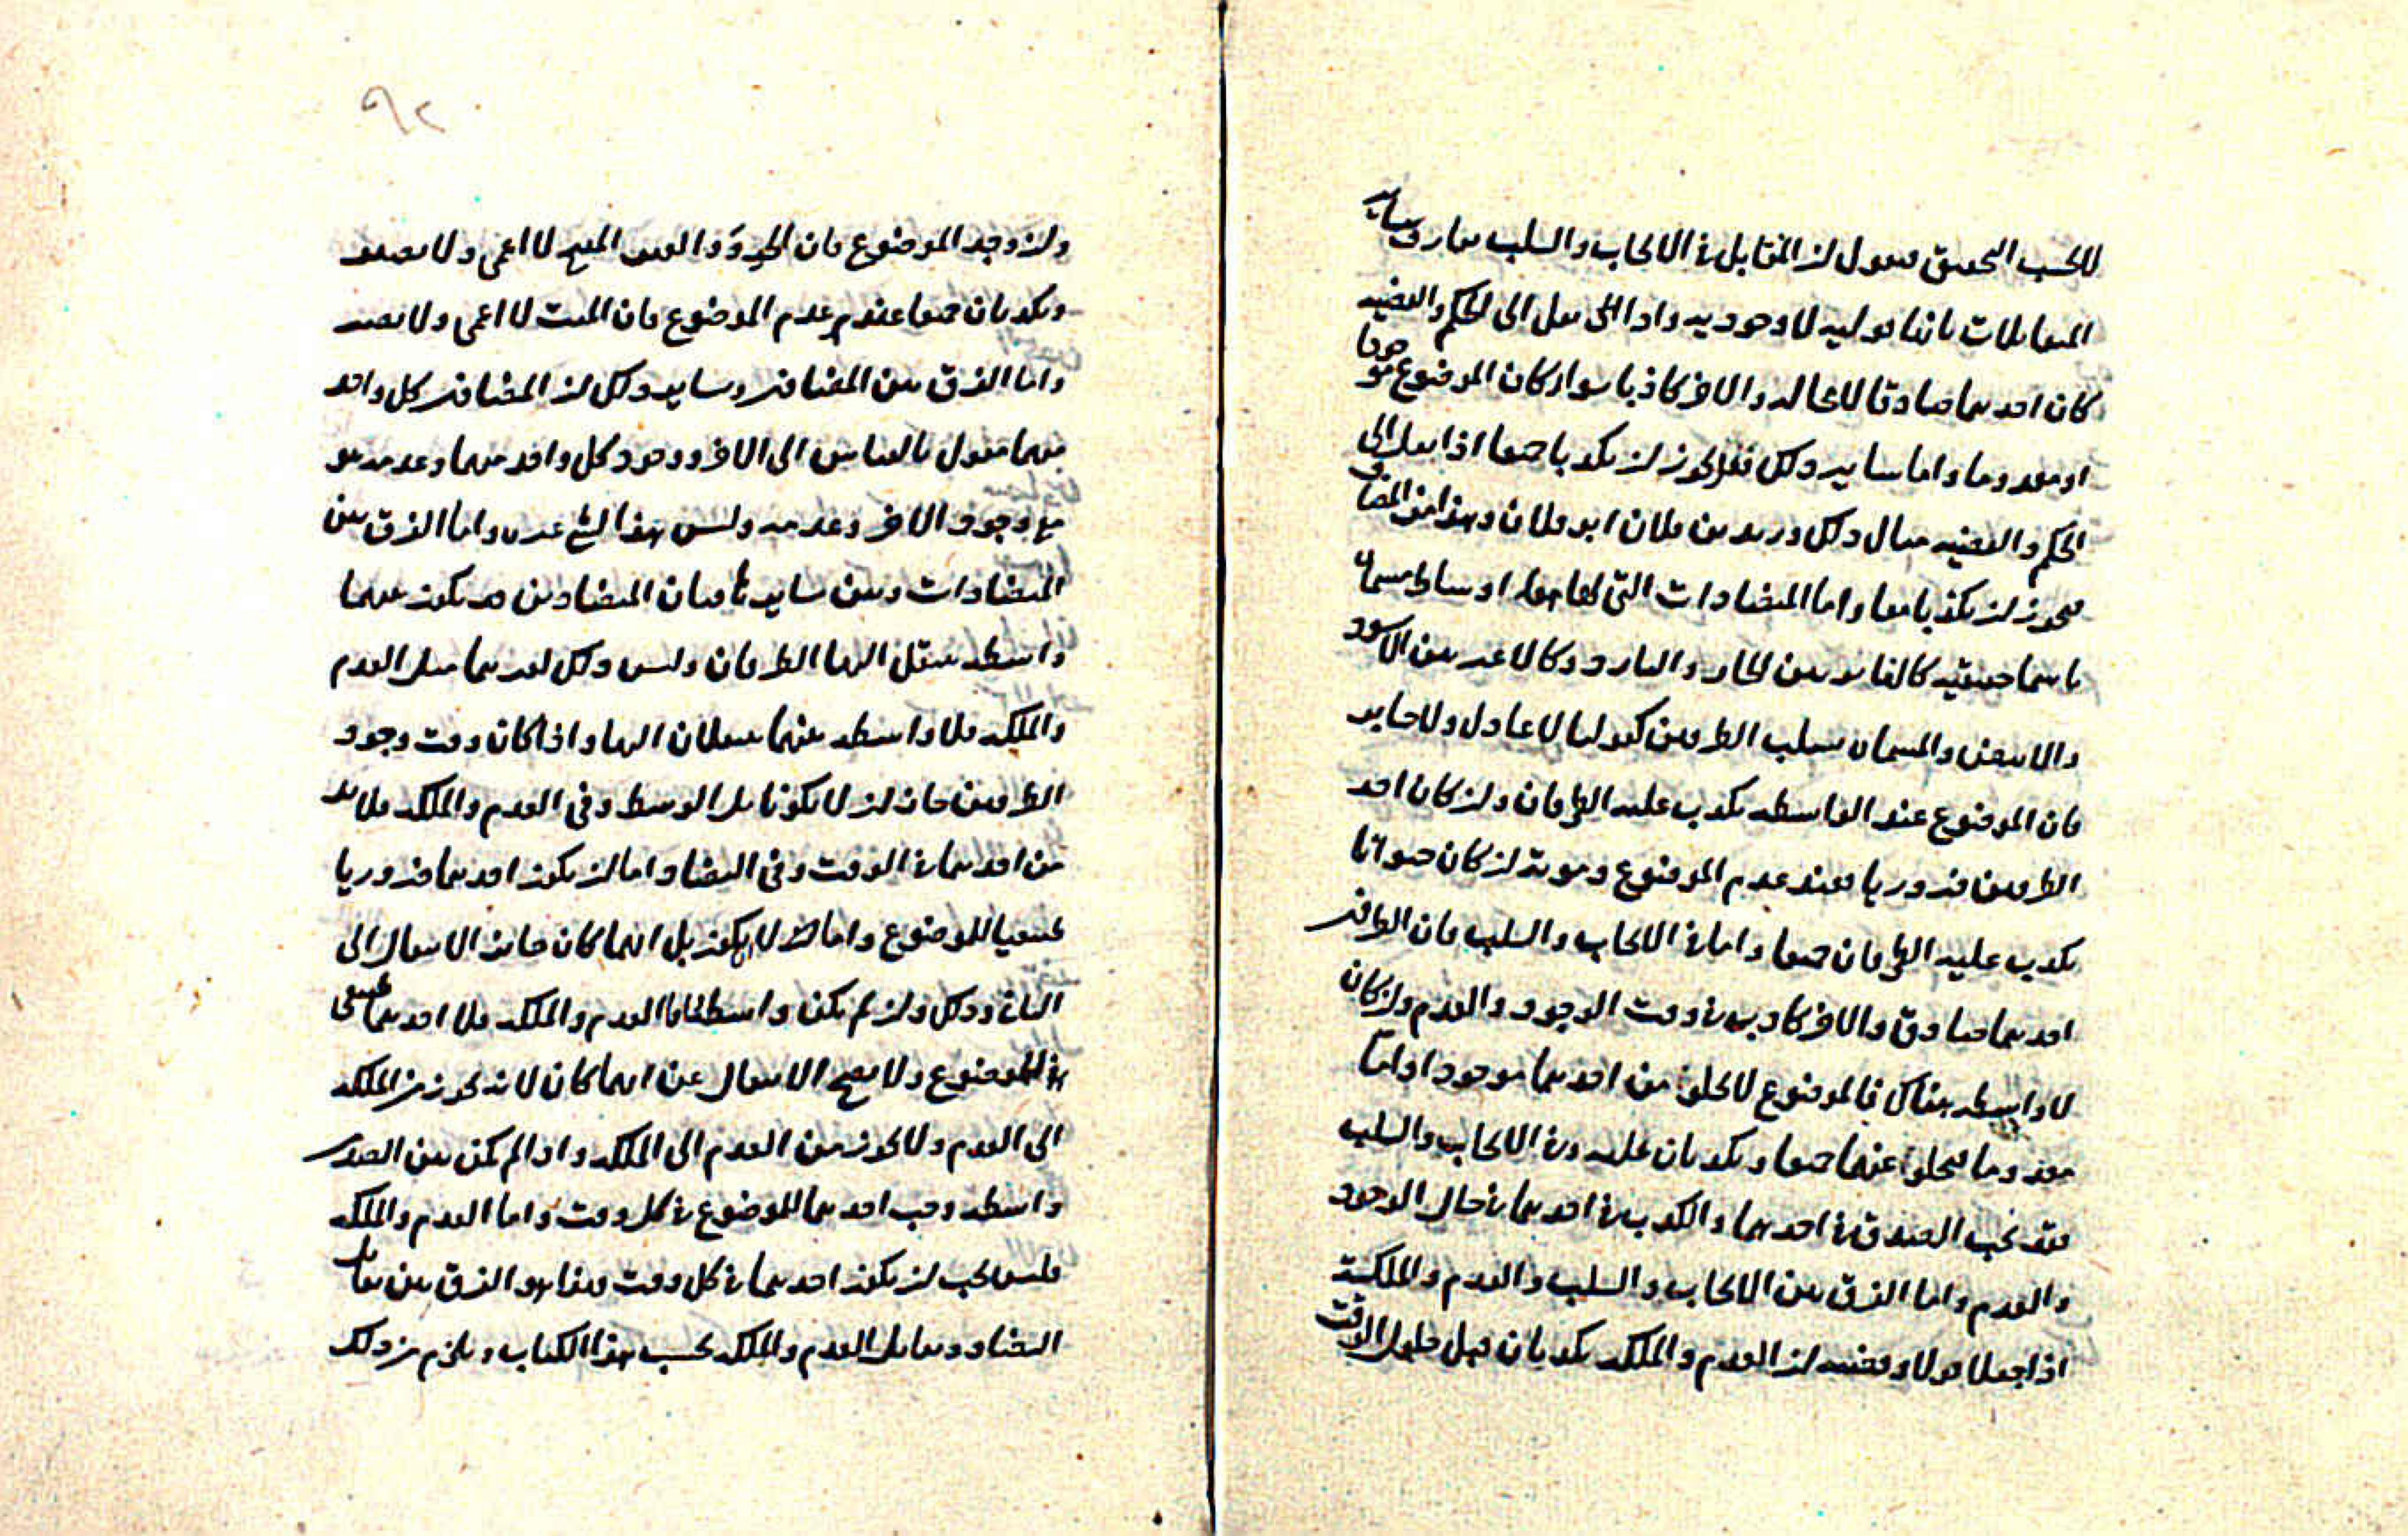 لا بحسب التحقيق فنقول ان المتقابل في الايجاب والسلب يفارق سائر
المتقابلات بانها قوليه لا وجوديه واذا نقل الى الحكم والقضيه
كان احدهما صادقا لا محاله والاخر كاذبا سواء كان الموضوع موجودا
او معدوما واما سائر ذلك فقد يجوز ان يكذبا جميعا اذا نقل الى
الحكم والقضيه مثال ذلك فلان ابو فلان وهذا من المضاف
فيجوز ان يكذبا معا واما المتضادات التي لها اوساط مسماة
باسما حقيقيه كالفاتر بين الحار والبارد وكالاغبر بين الاسود
والابيض والمسماه بسلب الطرفين كقولنا لا عادل ولا جاير
فان الموضوع عند الواسطه يكذب عليه الطرفان وان كان احد
الطرفين ضروريا فعند عدم الموضوع وموته ان كان حيوانا
يكذب عليه الطرفان جميعا واما في الايجاب والسلب فان الطرفين
احدهما صادق والاخر كاذب في وقت الوجود والعدم وان كان
لا واسطه هناك فالموضوع لا يخلو من احدهما موجودا واما
معدوما فيخلو عنهما جميعا ويكذبان عليه وفي الايجاب والسلب
فقد يجب الصدق في احدهما والكذب في احدهما في حال الوجود
والعدم واما الفرق بين الايجاب والسلب والعدم والملكة
اذا جعلا قولا وقضيه ان العدم والملكه يكذبان قبل حلول الوقت
٩٢
وان وجد الموضوع فان الجرو ذو العين المفتح لا اعمى ولا بصير
ويكذبان جميعا عند عدم الموضوع فان الميت لا اعمى ولا بصير
واما الفرق بين المضافين وسائر ذلك ان المضافين كل واحد
منهما مقول بالقياس الى الاخر ووجود كل واحد منهما وعدمه هو
مع وجود الاخر وعدمه وليس هذا لشيء غيره واما الفرق بين
المتضادات وبين سائر ما فان المتضادين قد يكون بينهما
واسطه ينتقل اليها الطرفان وليس ذلك لغيرهما مثل العدم
والملكه فلا واسطه بينهما ينتقلان اليها واذا كان وقت وجود
الطرفين جاز ان لا يكونا بل الوسط وفي العدم والملكه فلا بد
من احدهما في الوقت وفي التضاد اما ان يكون احدهما ضروريا
طبيعيا للموضوع واما ان لا يكون بل ايهما كان جائز الانتقال الى
الثاني وذلك وان لم يكن واسطه فاما العدم والملكه فلا احدهما طبيعي
في الموضوع ولا يصح الانتقال عن ايهما كان لانه يجوز من الملكه
الى العدم ولا يجوز من العدم الى الملكه واذا لم يكن بين الضدين
واسطه وجب احدهما للموضوع في كل وقت واما العدم والملكه
فليس يجب ان يكون احدهما في كل وقت وهذا هو الفرق بين تقابل
التضاد وتقابل العدم والملكه بحسب هذا الكتاب ويلزم من ذلك